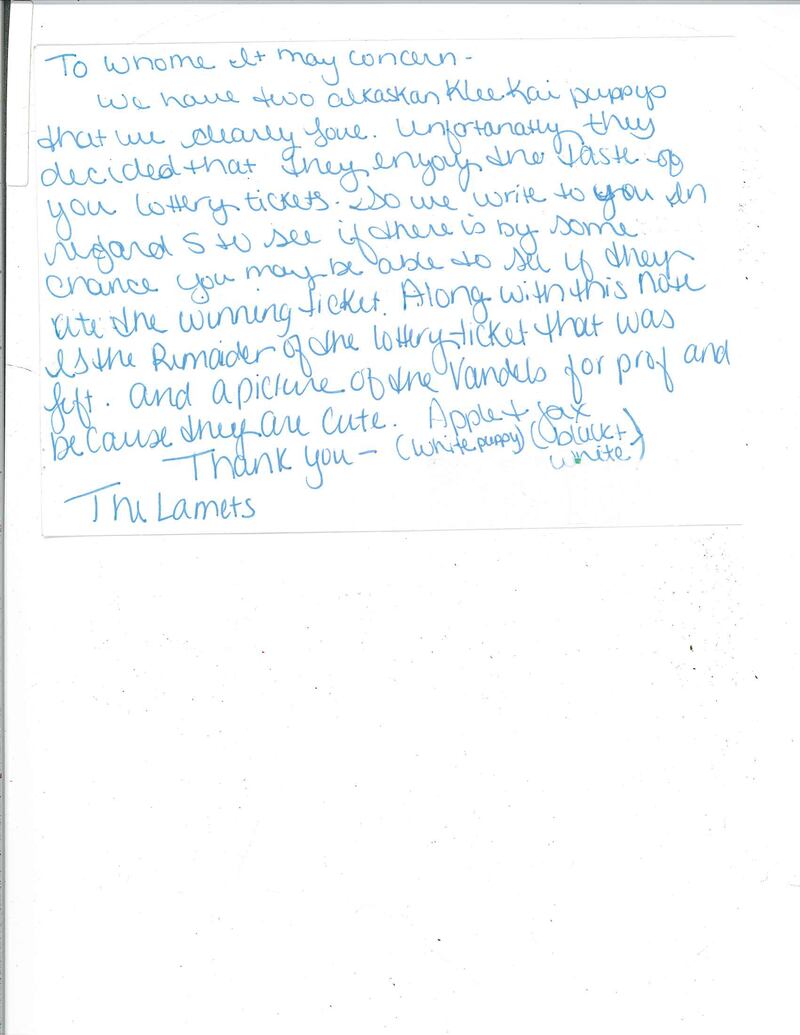 To Whome It may concern -
We have two alkaskan Klee Kai puppys
that we clearly love. Unfortanatly they
decided that they enjoy the taste of
you lottery tickets. So we write to you In
regard s to see if there is by some
chance you may be able to see if they
ate the winning ticket. Along with this note
Is the Rimaider of the lottery ticket that was
left. and a picture of the Vandels for prof and
because they are cute. Apple + Jax
Thank you - (white puppy) (black +
white)
The Lamets